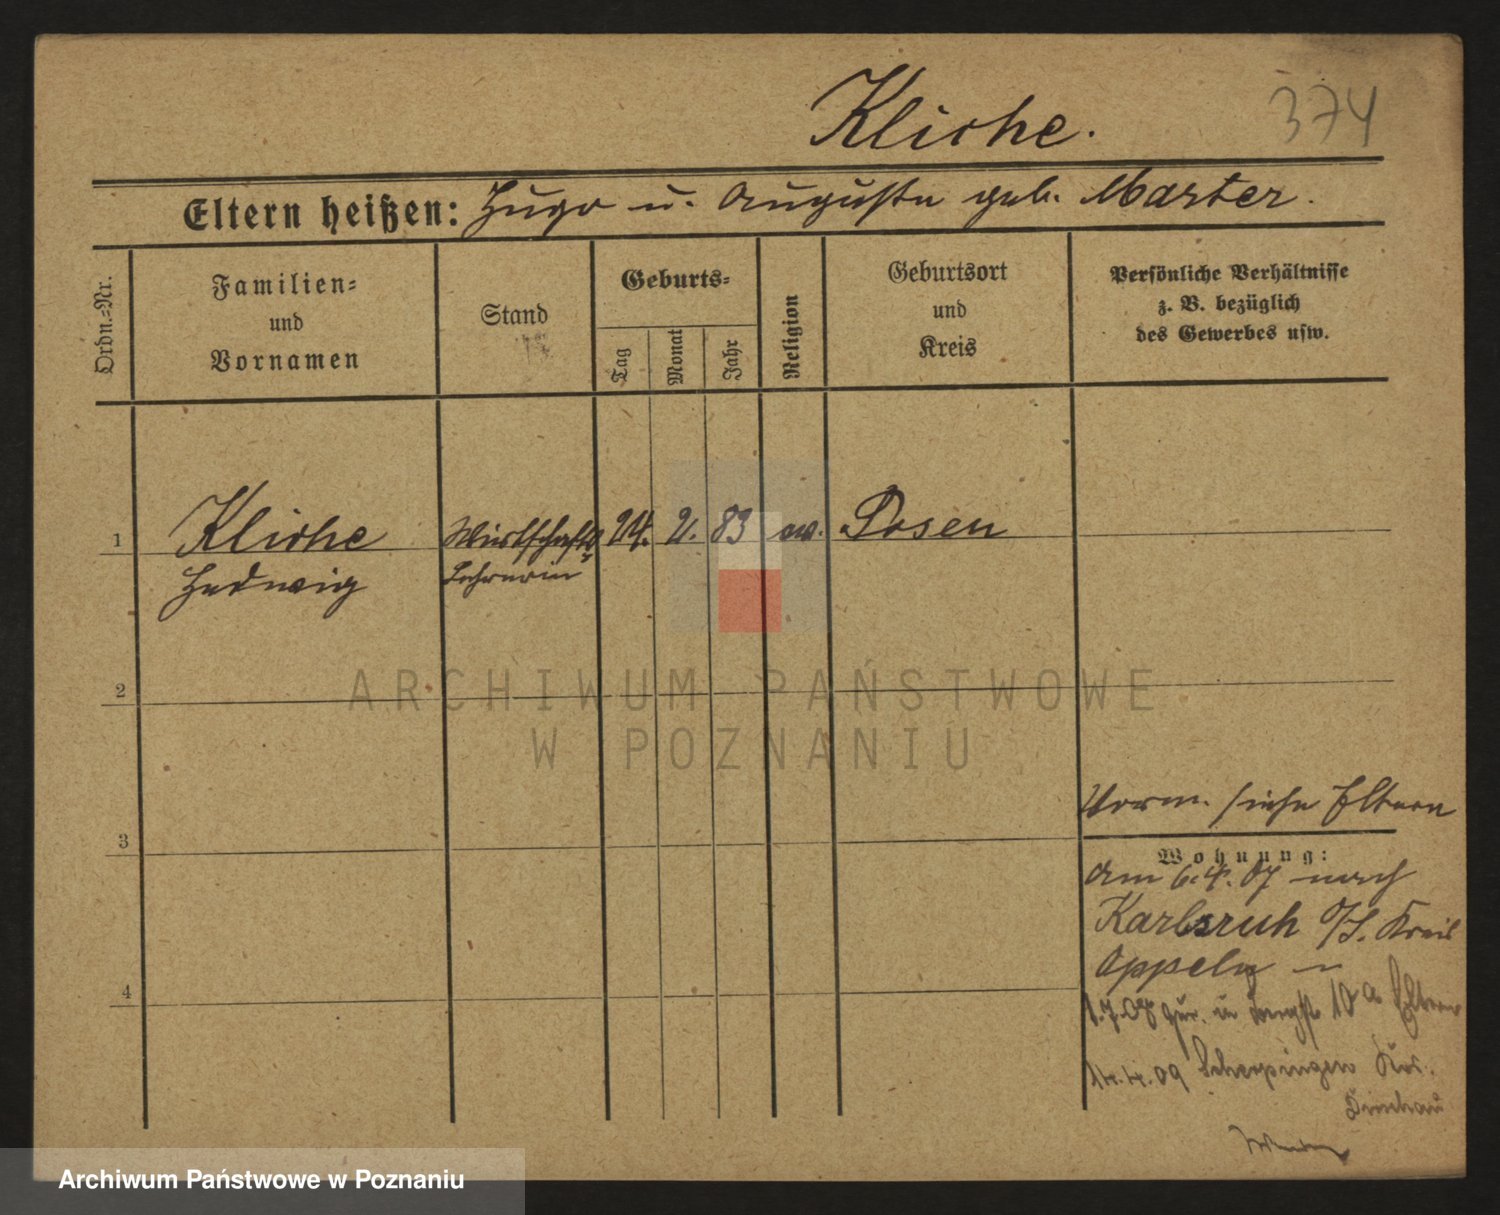 Kliche.
374
Eltern heißen: Hugo u. Auguste geb. Marter.
Ordn.-Nr.
Familien-
und
Vornamen
Stand
Geburts-
Tag
Monat
Jahr
Religion
Geburtsort
und
Kreis
Persönliche Verhältnisse
z. B. bezüglich
des Gewerbes usw.
1
Kliche
Hedwig
Wirtschafts
Lehrerin
24. 2. 83 ev. Posen
2
ARCHIWUM PAŃSTWOWE
W POZNANIU
3
4
Vorm. siehe Eltern
Wohnung:
am 6.4.07 nach
Karlsruh O/S. Kreis
Oppeln
1.7.08 zur. 10a Eltern
14.4.09 Scherpingen Krs.
Dirschau
Archiwum Państwowe w Poznaniu